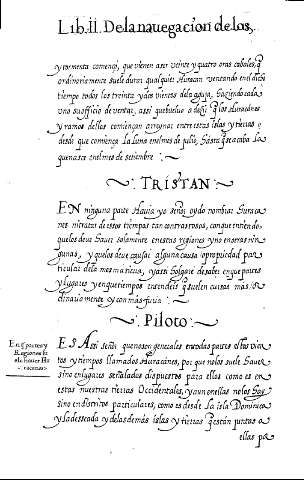 Lib. II. De la navegacion de los,
y tormenta començó, que vienen a ser veinte y quatro oras cabales, q
ordinariamente suele durar qualquier Huracan venteando en el dicho
tiempo todos los treinta y dos vientos de la aguja, haziendo cada
uno su officio de ventar, assi que buelvo a dezir q los Huracanes
y ramos dellos comiençan a reynar entre estas islas y tierras
desde que comiença la luna en el mes de julio, hasta q se acaba la
que nasce en el mes de setiembre :~
TRISTAN
EN ninguna parte Havia yo señor oydo nombrar Huraca
nes ni tratar de estos tiempos tan contrastosos, con que entiendo
que los deve haver solamente en estas regiones y no en otras nin
gunas, y que los deve causar alguna causa o propiedad par
ticular dela mesma tierra, y assi holgaré de saber en que partes
y lugares y en que tiempos entendeis q suelen cursar mas or
dinariamente y con mas furia
Piloto
En q partes y
Regiones se
Hu
racanes
ES Assi señor que no son generales en todas partes estos vien
tos y tiempos llamados Huracanes, por que no los suele haver
sino en lugares señalados dispuestos para ellos como es en
estas nuestras tierras Occidentales, y aun en ellas no los Hay
sino en distritos particulares, como es desde la isla Dominica
y la desseada y de las demás islas y tierras q están juntas a
ellas pa